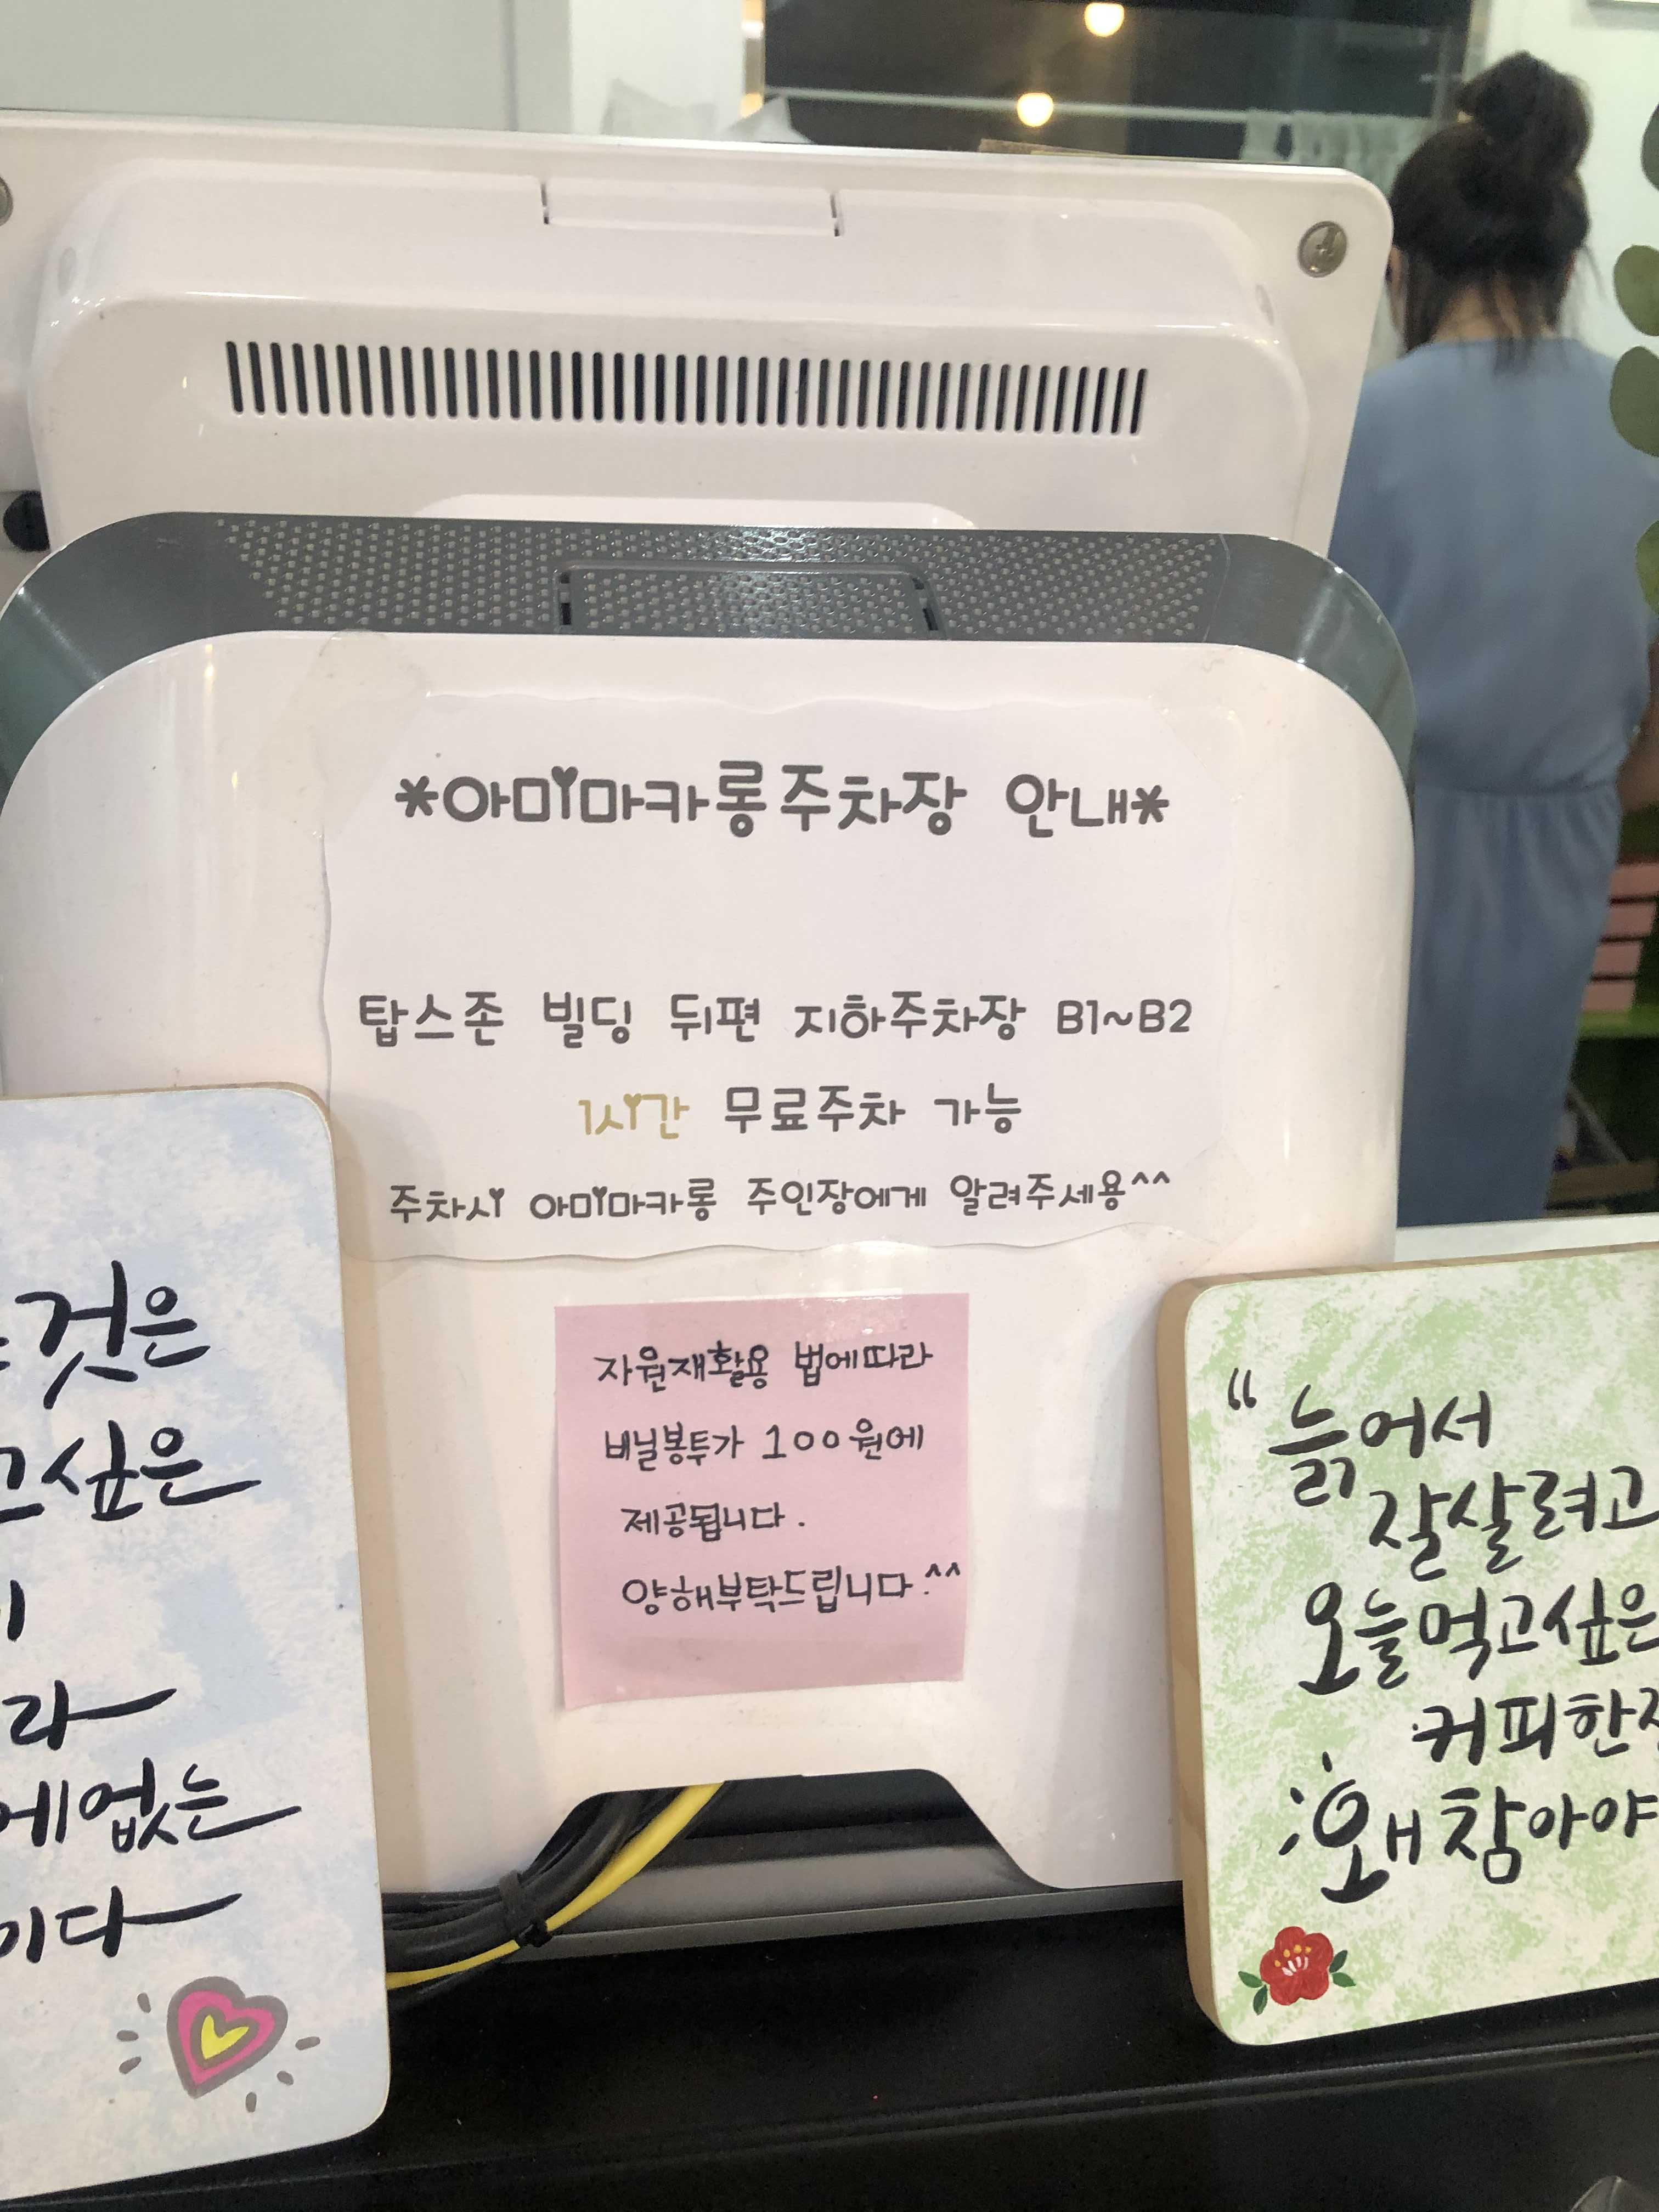 *아미마카롱주차장 안내*
탑스존 빌딩 뒤편 지하주차장 B1~B2
1시간 무료주차 가능
주차시 아미마카롱 주인장에게 알려주세용^^
자원재활용 법에따라
비닐봉투가 100원에
제공됩니다.
양해부탁드립니다.^^
것은
고싶은
라
에없는
이다
“늙어서
잘살려고
오늘먹고싶은
커피한
왜참아야